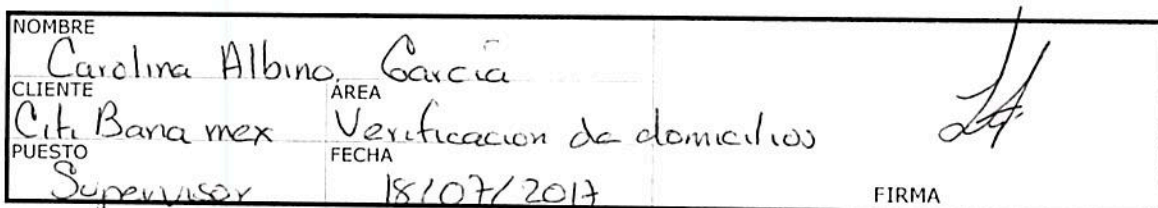 NOMBRE
Carolina Albino. Garcia
CLIENTE AREA
Citi Bana mex Verificacion de domicilios
PUESTO FECHA
Supervisor 18/07/2017
FIRMA